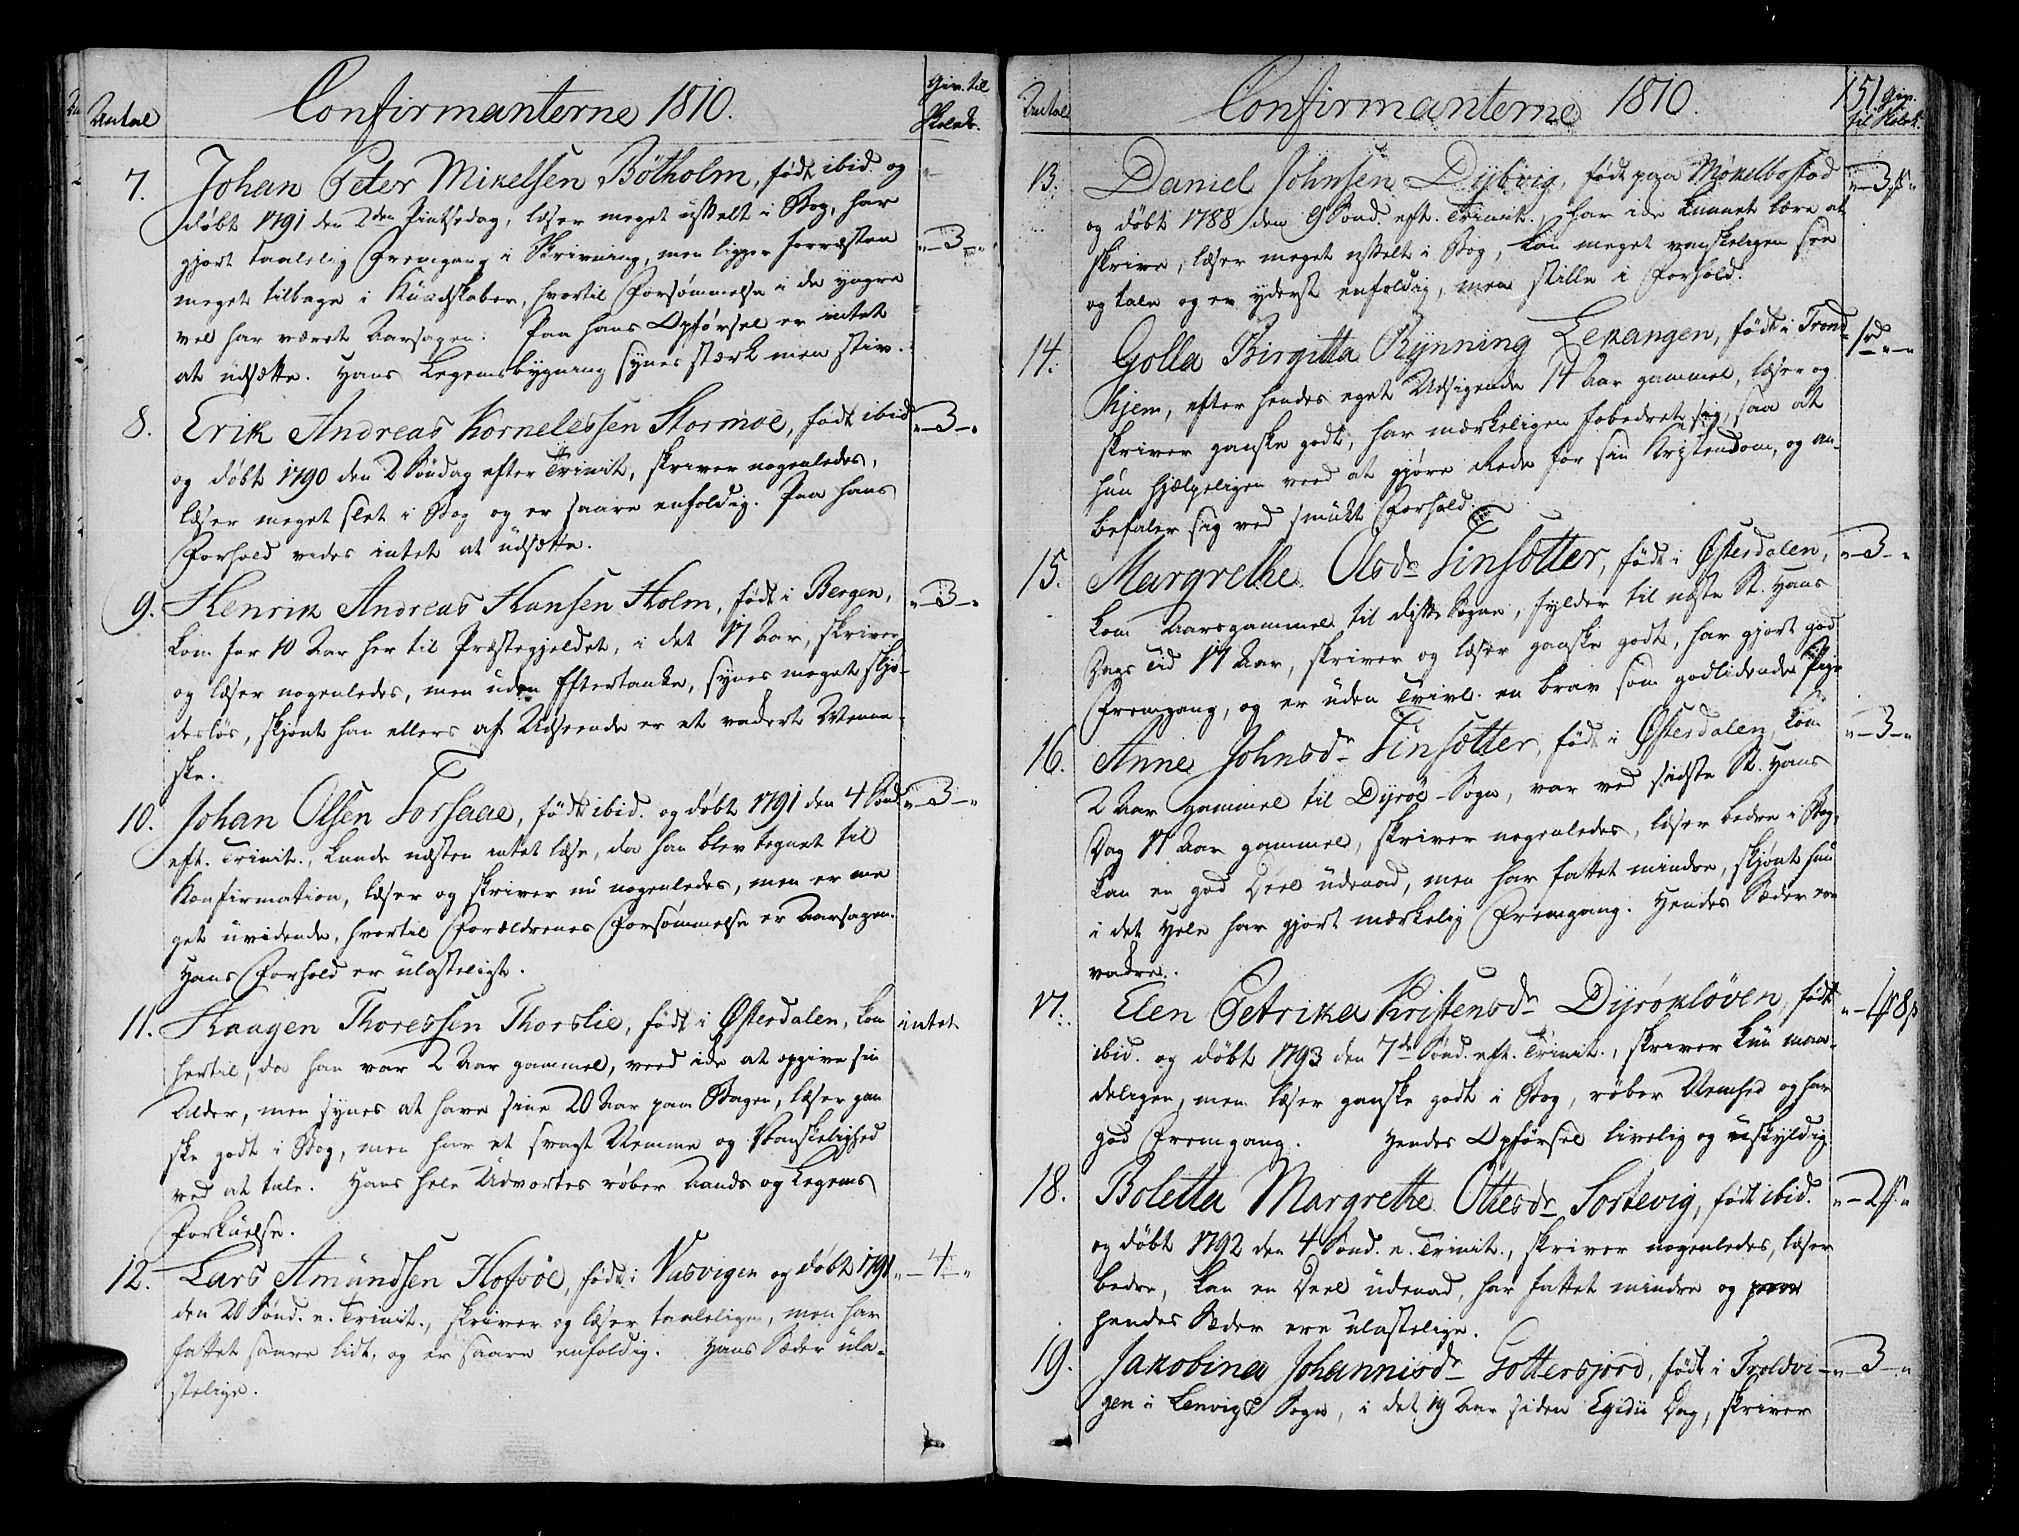 Antal
Confirmanterne 1810.
Giv. til
Skolek.
7. Johan Peter Mikelsen Bøtholm, født ibid. og
døbt 1791 den 2den Pintsedag, læser meget usselt i Bog, har
gjort taalelig Fremgang i Skrivning, men ligger forresten
"-3-"
meget tilbage i Kundskaber, hvortil Forsømmelse i de yngre
vel har været Aarsagen. Paa hans Opførsel er intet
at udsætte. Hans Legemsbygning synes stærk men stiv.
8. Erik Andreas Kornelessen Stormoe, født ibid "-3-"
og døbt 1790 den 2 Søndag efter Trinit, skriver nogenledes,
læser meget slet i Bog og er saare enfoldig. Paa hans
Forhold vides intet at udsætte.
9. Henrik Andreas Hansen Holm, født i Bergen, "-3-"
kom for 10 Aar her til Præstegjeldet, i det 17 Aar, skriver
og læser nogenledes, men uden Eftertanke, synes meget skjø-
desløs, skjønt han ellers af Udseende er et vakert Menne-
ske.
10. Johan Olsen Forsaae, født ibid. og døbt 1791 den 4 Sønd. "-3-"
eft. Trinit., kunde næsten intet læse, da han blev tegnet til
Konfirmation, læser og skriver nu nogenledes, men er me
get uvidende, hvortil Forældrenes Forsømmelse er Aarsagen.
Hans Forhold er ulasteligt.
11. Haagen Thoressen Thorslie, født i Østerdalen, kom intet
hertil, da han var 2 Aar gammel, veed ikke at opgive sin
Alder, men synes at have sine 20 Aar paa Bagen, læser gan
ske godt i Bog, men har et svagt Nemme og Vanskelighed
ved at tale. Hans hele Udvortes røber Aands og Legems
Forkuelse.
12. Lars Amundsen Hofsøe, født i Vasvigen og døbt 1791 "-4-"
den 20 Sønd. e. Trinit., skriver og læser taaleligen, men har
fattet saare lidt, og er saare enfoldig. Hans Sæder ula-
stelige.
Antal
Confirmanterne 1810.
151 Giv.
til Skolek.
13. Daniel Johnsen Dybvig, født paa Møkelbostad "-3ß"
og døbt 1788 den 9 Sønd. eft. Trinit., har ikke kunnet lære at
skrive, læser meget usselt i Bog, kan meget vanskeligen see
og tale og er yderst enfoldig, men stille i Forhold.
14. Golla Birgitta Rynning Lexangen, født i Trond- 1rd"-"
hjem, efter hendes eget Udsigende 17 Aar gammel, læser og
skriver ganske godt, har mærkeligen fobedret sig, saa at
hun hjælpeligen veed at gjøre Rede for sin Kristendom, og an-
befaler sig ved smukt Forhold.
15. Margrethe Olsdr Finsætter, født i Østerdalen, "-3-"
kom Aarsgammel til dette Sogn, fylder til næste St. Hans
Dags Tid 17 Aar, skriver og læser ganske godt, har gjort god
Fremgang, og er uden Tvivl en brav som godlidende Pige
16. Anne Johnsdr Finsætter, født i Østerdalen, kom "-3-"
2 Aar gammel til Dyrøe-Sogn, var ved sidste St. Hans
Dag 17 Aar gammel, skriver nogenledes, læser bedre i Bog,
kan en god Deel udenad, men har fattet mindre, skjønt hun
i det Hele har gjort mærkelig Fremgang. Hendes Sæder ere
vakre.
17. Elen Petrikea Kristensdr Dyrøekløven, født "-48ß
ibid. og døbt 1793 den 7de Sønd. eft. Trinit., skriver kun maa-
deligen, men læser ganske godt i Bog, røber Nemhed og har
god Fremgang. Hendes Opførsel livelig og uskyldig
18. Boletta Margrethe Ottesdr Sortevig, født ibid. "-2ß"
og døbt 1792 den 4 Sønd. e. Trinit., skriver nogenledes, læser
bedre, kan en Deel udenad, har fattet mindre og
hendes Sæder ere ulastelige.
19. Jakobina Johannisdr Gottersjord, født i Troldvi- "-3-"
gen i Lenvigs Sogn, i det 19 Aar siden Egidii Dag, skriver